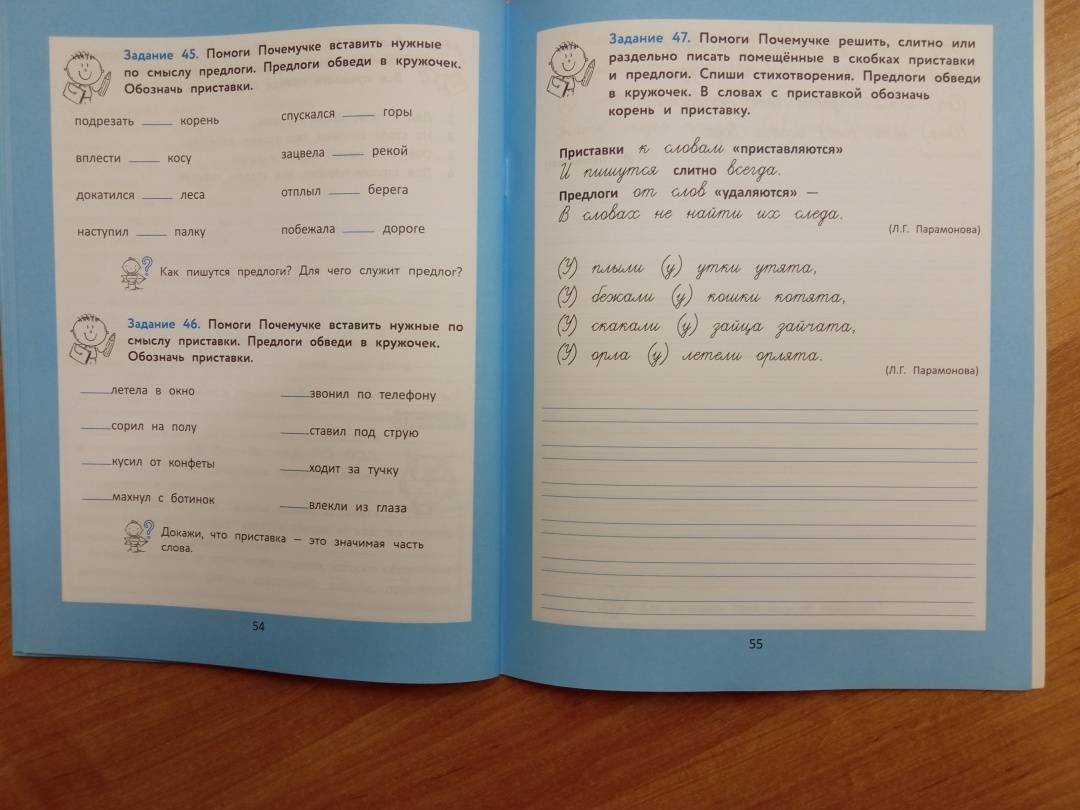 Задание 45. Помоги Почемучке вставить нужные
по смыслу предлоги. Предлоги обведи в кружочек.
Обозначь приставки.
подрезать ____ корень
спускался ____ горы
вплести ____ косу
зацвела ____ рекой
докатился ____ леса
отплыл ____ берега
наступил ____ палку
побежала ____ дороге
Как пишутся предлоги? Для чего служит предлог?
Задание 46. Помоги Почемучке вставить нужные по
смыслу приставки. Предлоги обведи в кружочек.
Обозначь приставки.
____летела в окно
____звонил по телефону
____сорил на полу
____ставил под струю
____кусил от конфеты
____ходит за тучку
____махнул с ботинок
____влекли из глаза
Докажи, что приставка — это значимая часть
слова.
54
Задание 47. Помоги Почемучке решить, слитно или
раздельно писать помещённые в скобках приставки
и предлоги. Спиши стихотворения. Предлоги обведи
в кружочек. В словах с приставкой обозначь
корень и приставку.
Приставки к словам «приставляются»
И пишутся слитно всегда.
Предлоги от слов «удаляются» —
В словах не найти их следа.
(Л.Г. Парамонова)
(У) плыли (у) утки утята,
(У) бежали (у) кошки котята,
(У) скакали (у) зайца зайчата,
(У) орла (у) летели орлята.
(Л.Г. Парамонова)
55